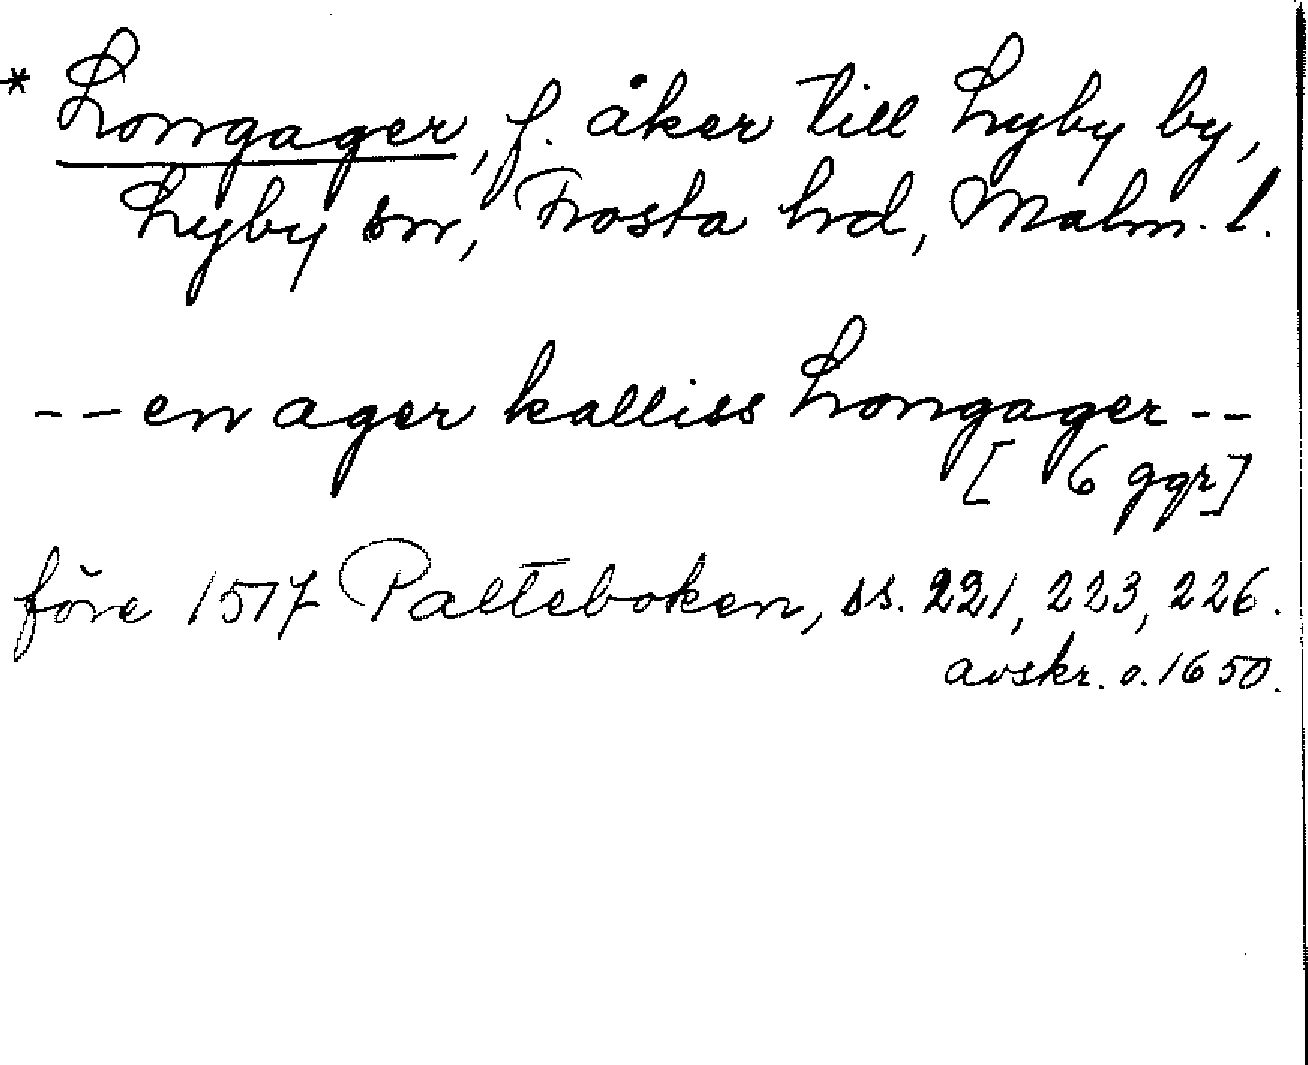 * Longager, f. åker till Lyby by,
Lyby sn, Frosta hd, Malm. l.
-- en ager kalliss Longager --
[ 6 ggr]
före 1517 Palteboken, ss. 221, 223, 226.
avskr. o. 1650.